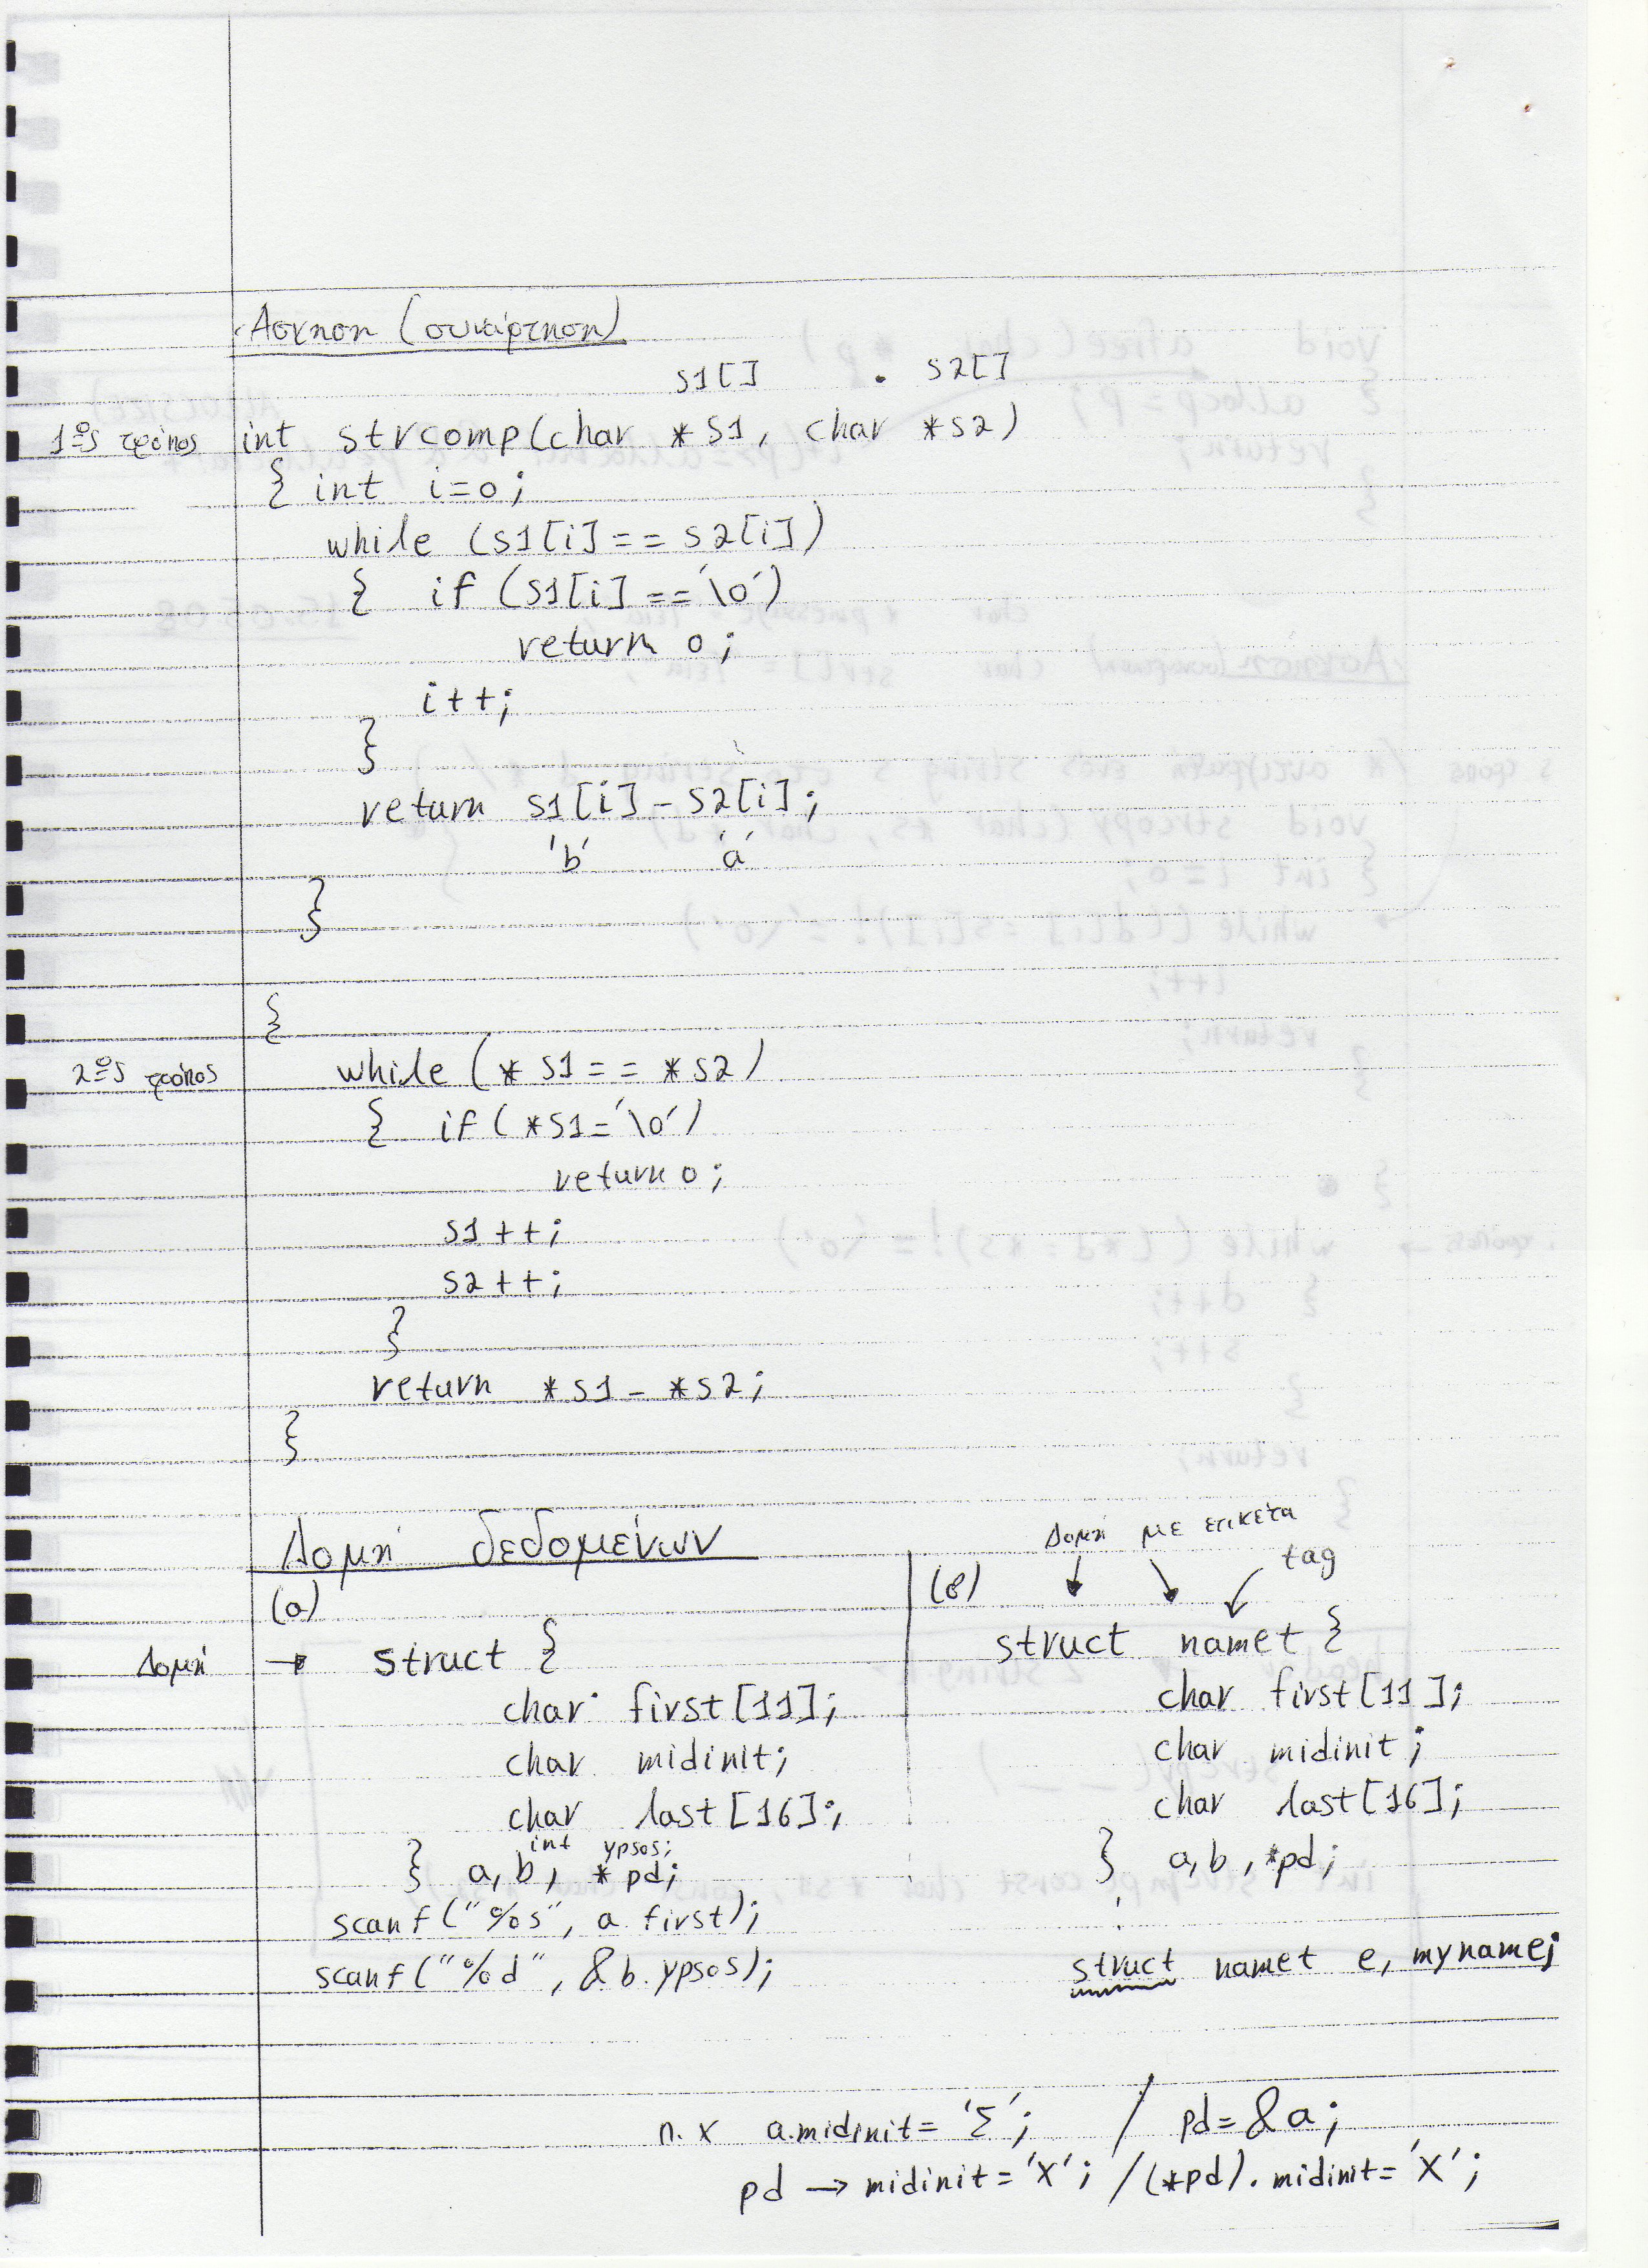 Άσκηση (συνάρτηση)
s1[] . s2[]
1ος τρόπος int strcomp(char *s1, char *s2)
{ int i=0;
while (s1[i]==s2[i])
{ if (s1[i]=='\0')
return 0;
i++;
}
return s1[i]-s2[i];
'b' 'a'
}
{
2ος τρόπος while (*s1==*s2)
{ if(*s1='\0')
return 0;
s1++;
s2++;
}
return *s1-*s2;
}
Δομή δεδομένων
(α)
Δομή → struct {
char first[11];
char midinit;
char last[16];
int ypsos;
} a,b, *pd;
scanf("%s", a.first);
scanf("%d", &b.ypsos);
Δομή με ετικέτα
(β) tag
struct namet {
char first[11];
char midinit;
char last[16];
} a,b,*pd;
:
struct namet e, myname;
π.χ a.midinit='Σ'; / pd=&a;
pd → midinit='X'; /(*pd).midinit='X';